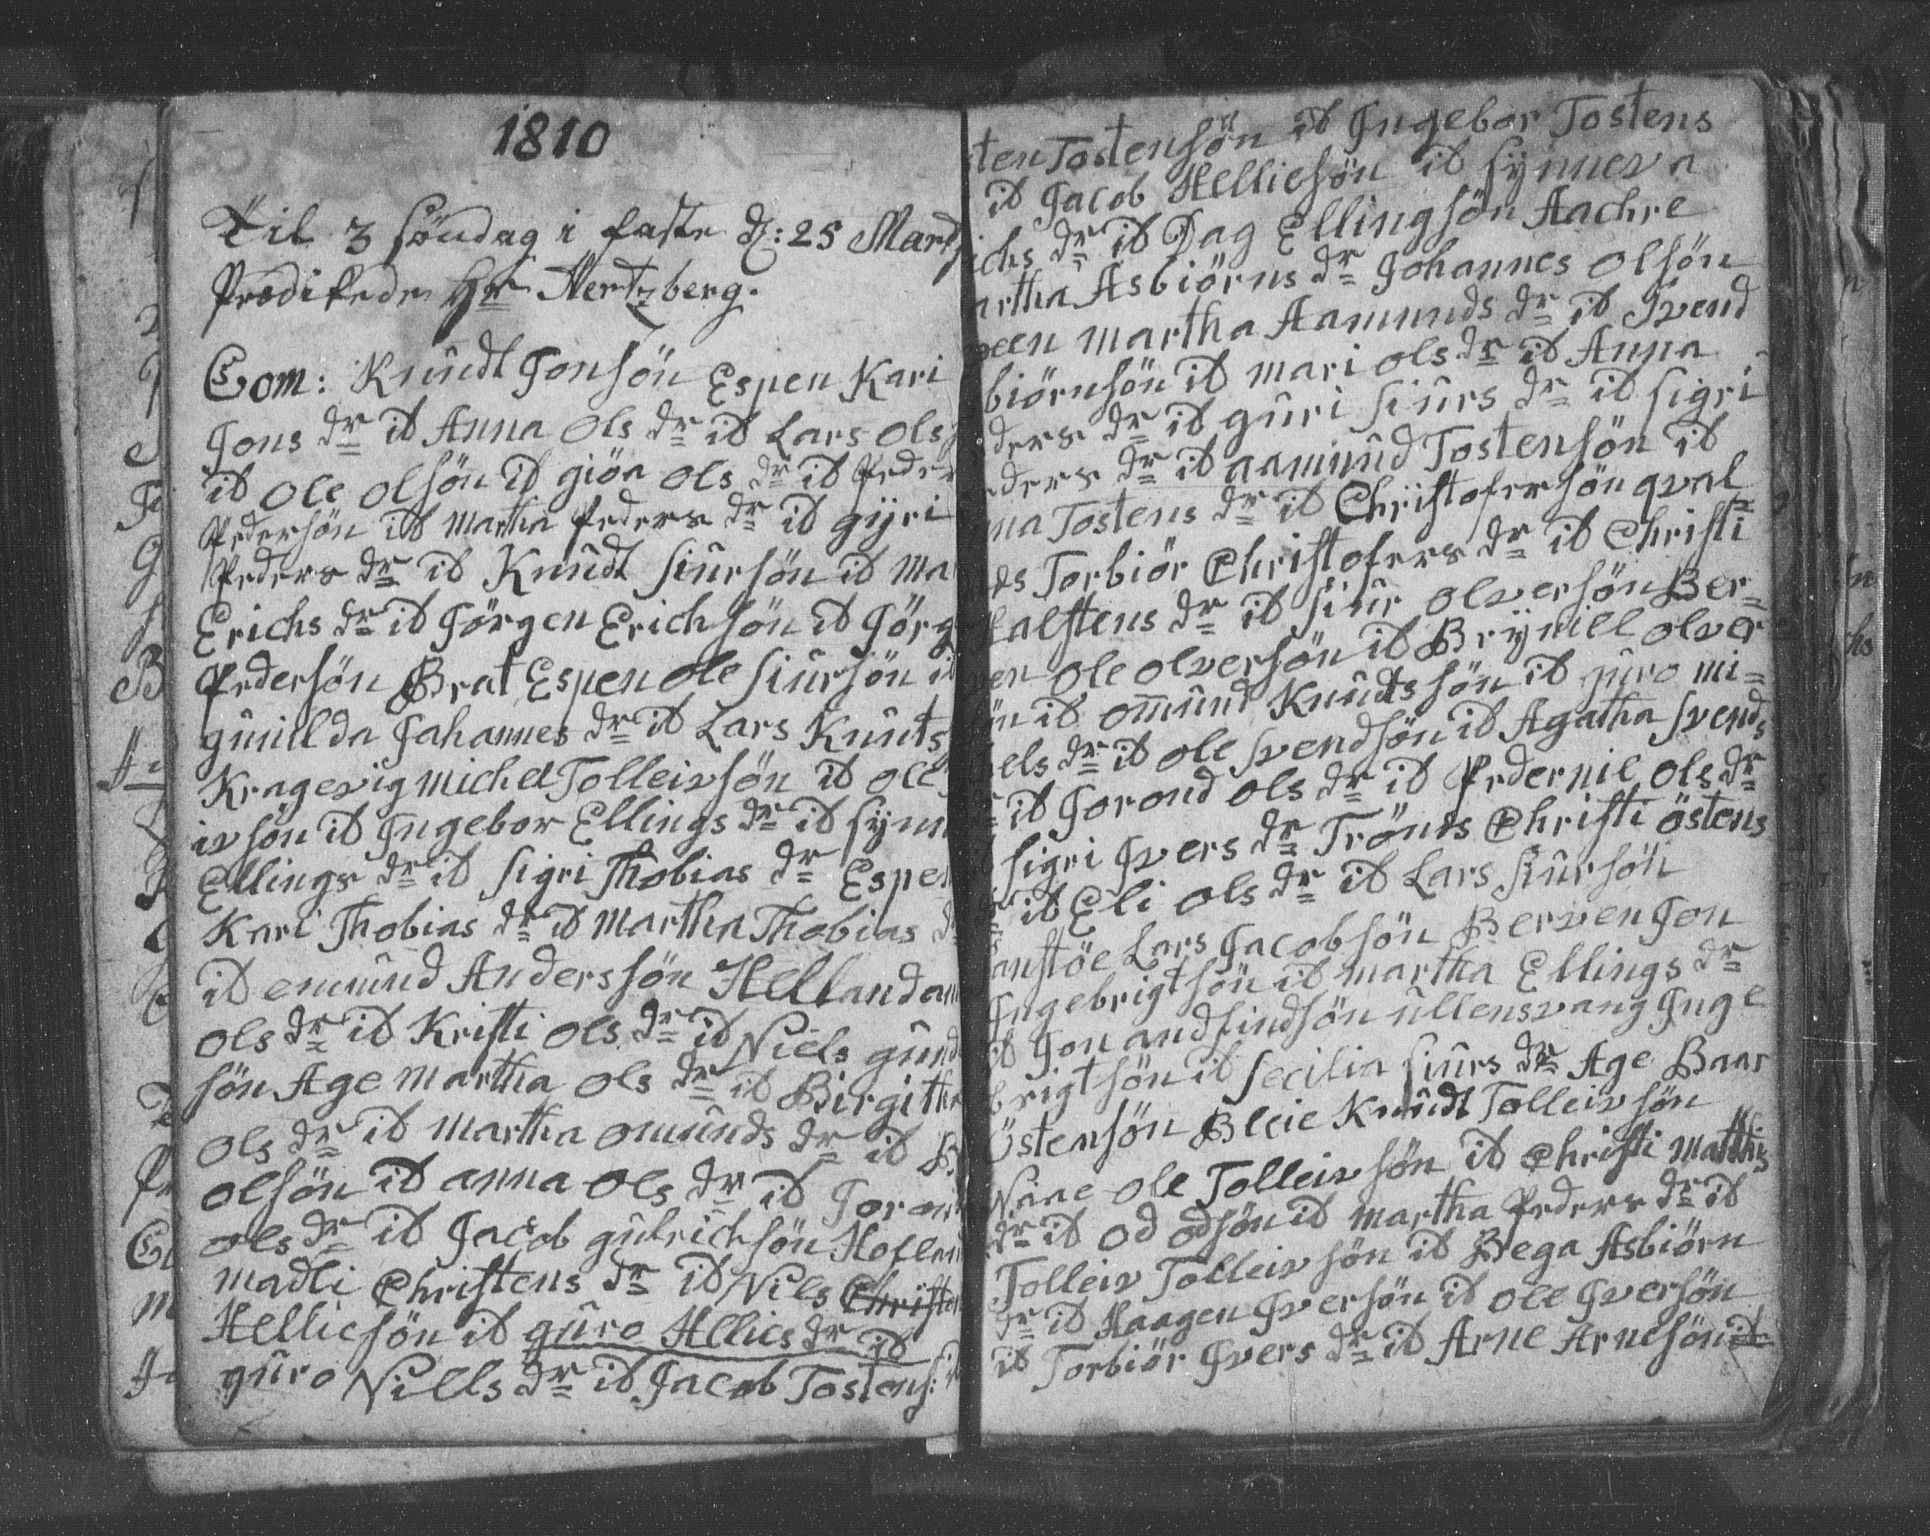 1810
Til 3 söndag i faste d: 25 Marty
Prædikede Hr Hertzberg.
Com: Knudt Jonsön Espen Kari
Jons dr it Anna Ols dr it Lars Ols
it Ole olsön it giöa ols dr it Peder
Pedersön it Martha Peders dr it gÿri
Peders dr it Knudt siursön it Ma
Erichs dr it Jörgen Erichsön it Jörg
Pedersön Brat Espen ole siursön it
gunillda Jahannes dr it Lars Knuts
Kragevig michel Tolleivsön it ole
ivsön it Ingebor Ellings dr it sÿnn
Ellings dr it sigri Thobias dr Espen
Kari Thobias dr it Martha Thobias d
it emund Anderssön Helland an
ols dr it Kristi ols dr it Niels gund
sön Age martha ols dr it Birgitha
ols dr it martha omunds dr it B
olsön it anna ols dr it Joron
ols dr it Jacob gulrichsön Hofland
madli Christens dr it Niels Christen
Helliesön it guro Hellies dr it
guro Niells dr it Jacob Tostens:
sten Tostensön it Ingebor Tostens
it Jacob Helliesön it sÿnneva
ichs dr it Dag Ellingsön Aachre
artha Asbiörns dr Johannes olsön
veen martha Aamunds dr it Svend
biörnsön it mari ols dr it Anna
ders dr it guri siurs dr it sigri
eders dr it aamund Tostensön it
na Tostens dr it Christofersön qval
ds Torbiör Christofers dr it Christi
alstens dr it siur olversön Ber=
ven ole olversön it Brÿnill olver
ön it omund Knudtssön it guro mi=
els dr it ole svendsön it Agatha svends
it Gorond ols dr it Pedernil ols dr
sigri Ivers dr Trönes Christi östens
it Eli ols dr it Lars siursön
anstöe Lars Jacobsön Berven Jon
Ingebrigtsön it martha Ellings dr
it Jon andfindsön ullensvang Inge
brigtsön it secilia siurs dr Age Baar
östensön Bleie Knudt Tolleivsön
Naae ole Tolleivsön it Christi matthis
dr it od odsön it martha Peders dr it
Tolleiv Tolleivsön it Brega Asbiörn
dr it Haagen Iversön it ole Iversön
it Torbiör Ivers dr it Arne Arnesön it